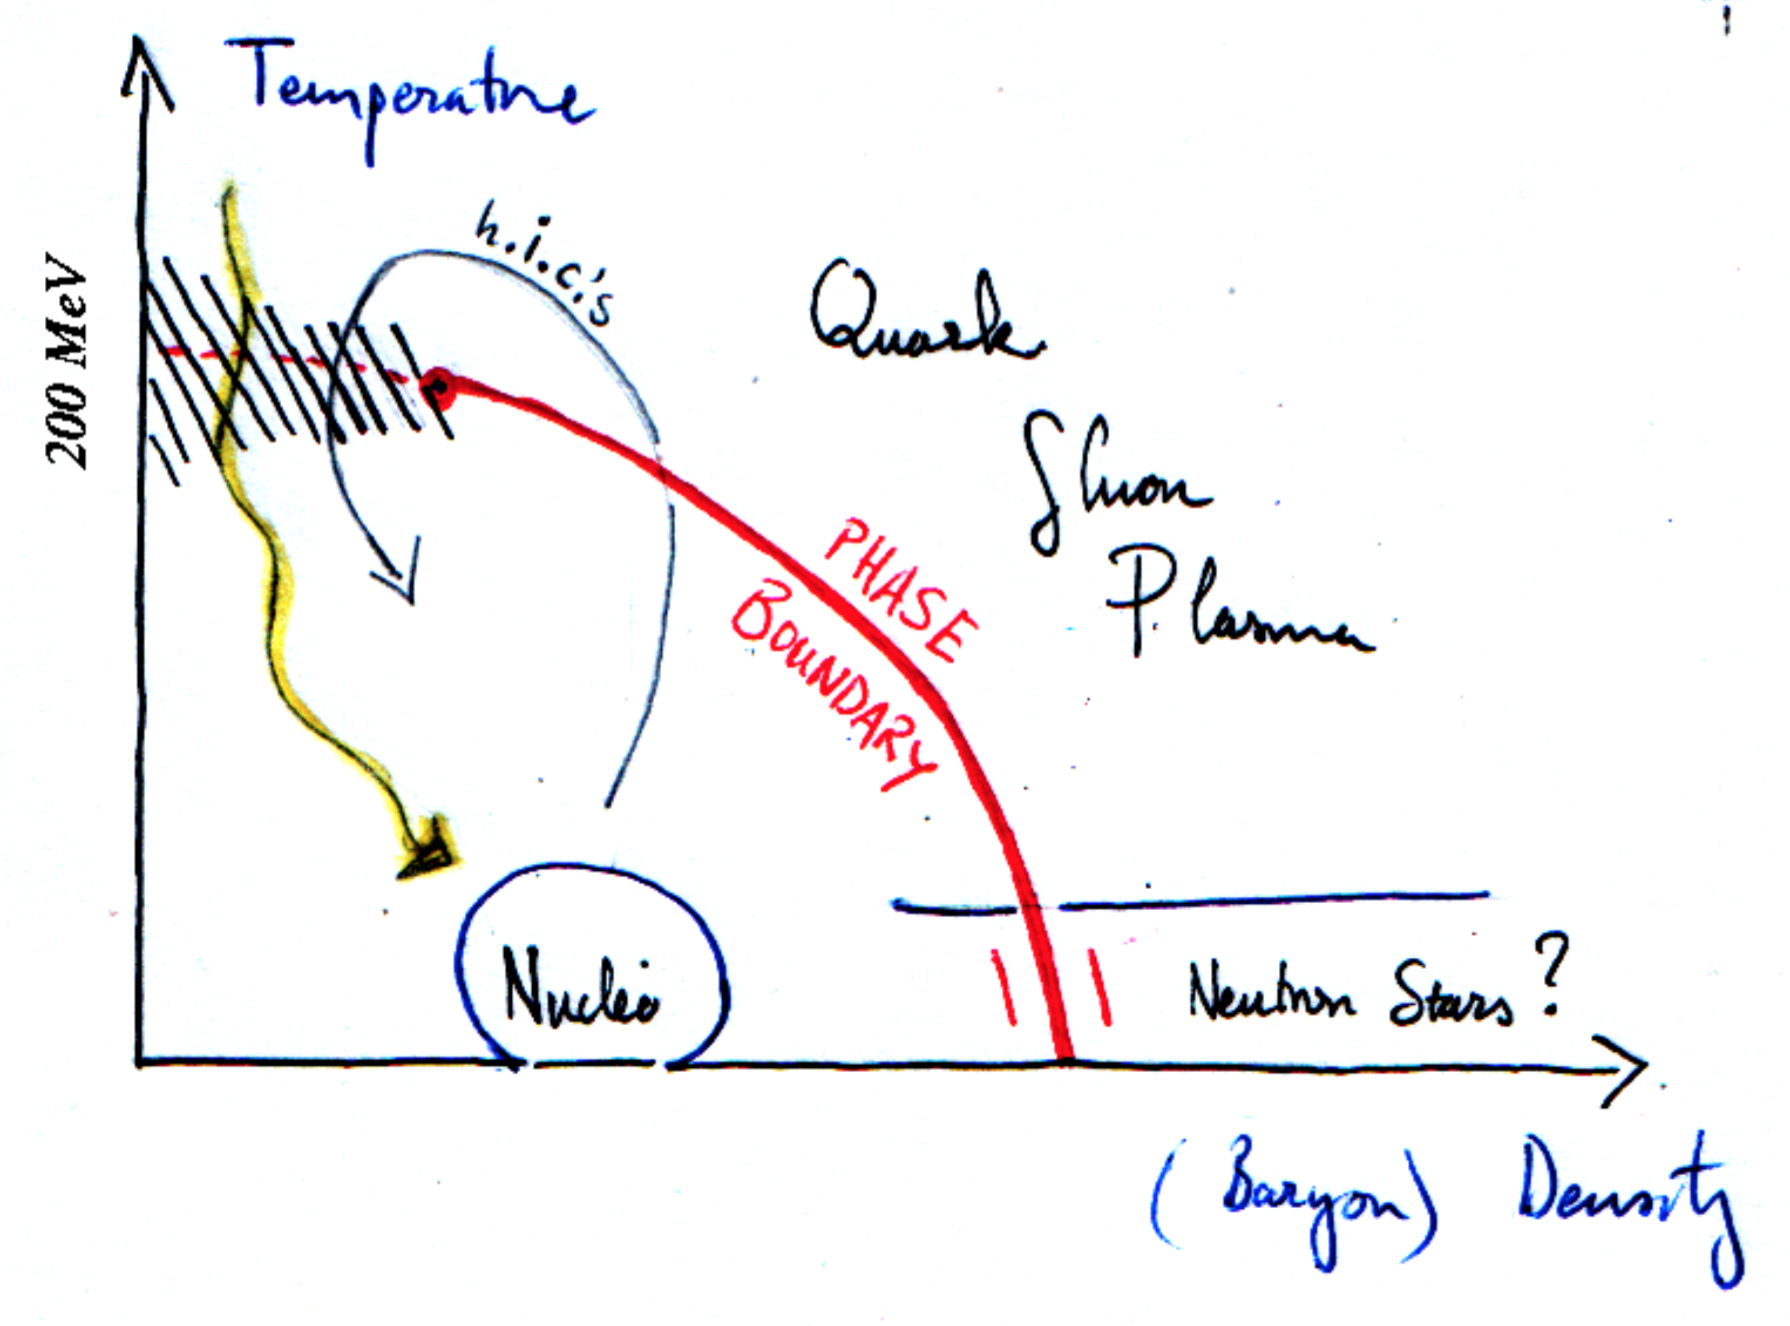 Temperature
200 MeV
h.i.c.'s
Quark
Gluon
Plasma
PHASE
BOUNDARY
Nuclei
Neutron Stars?
(Baryon) Density